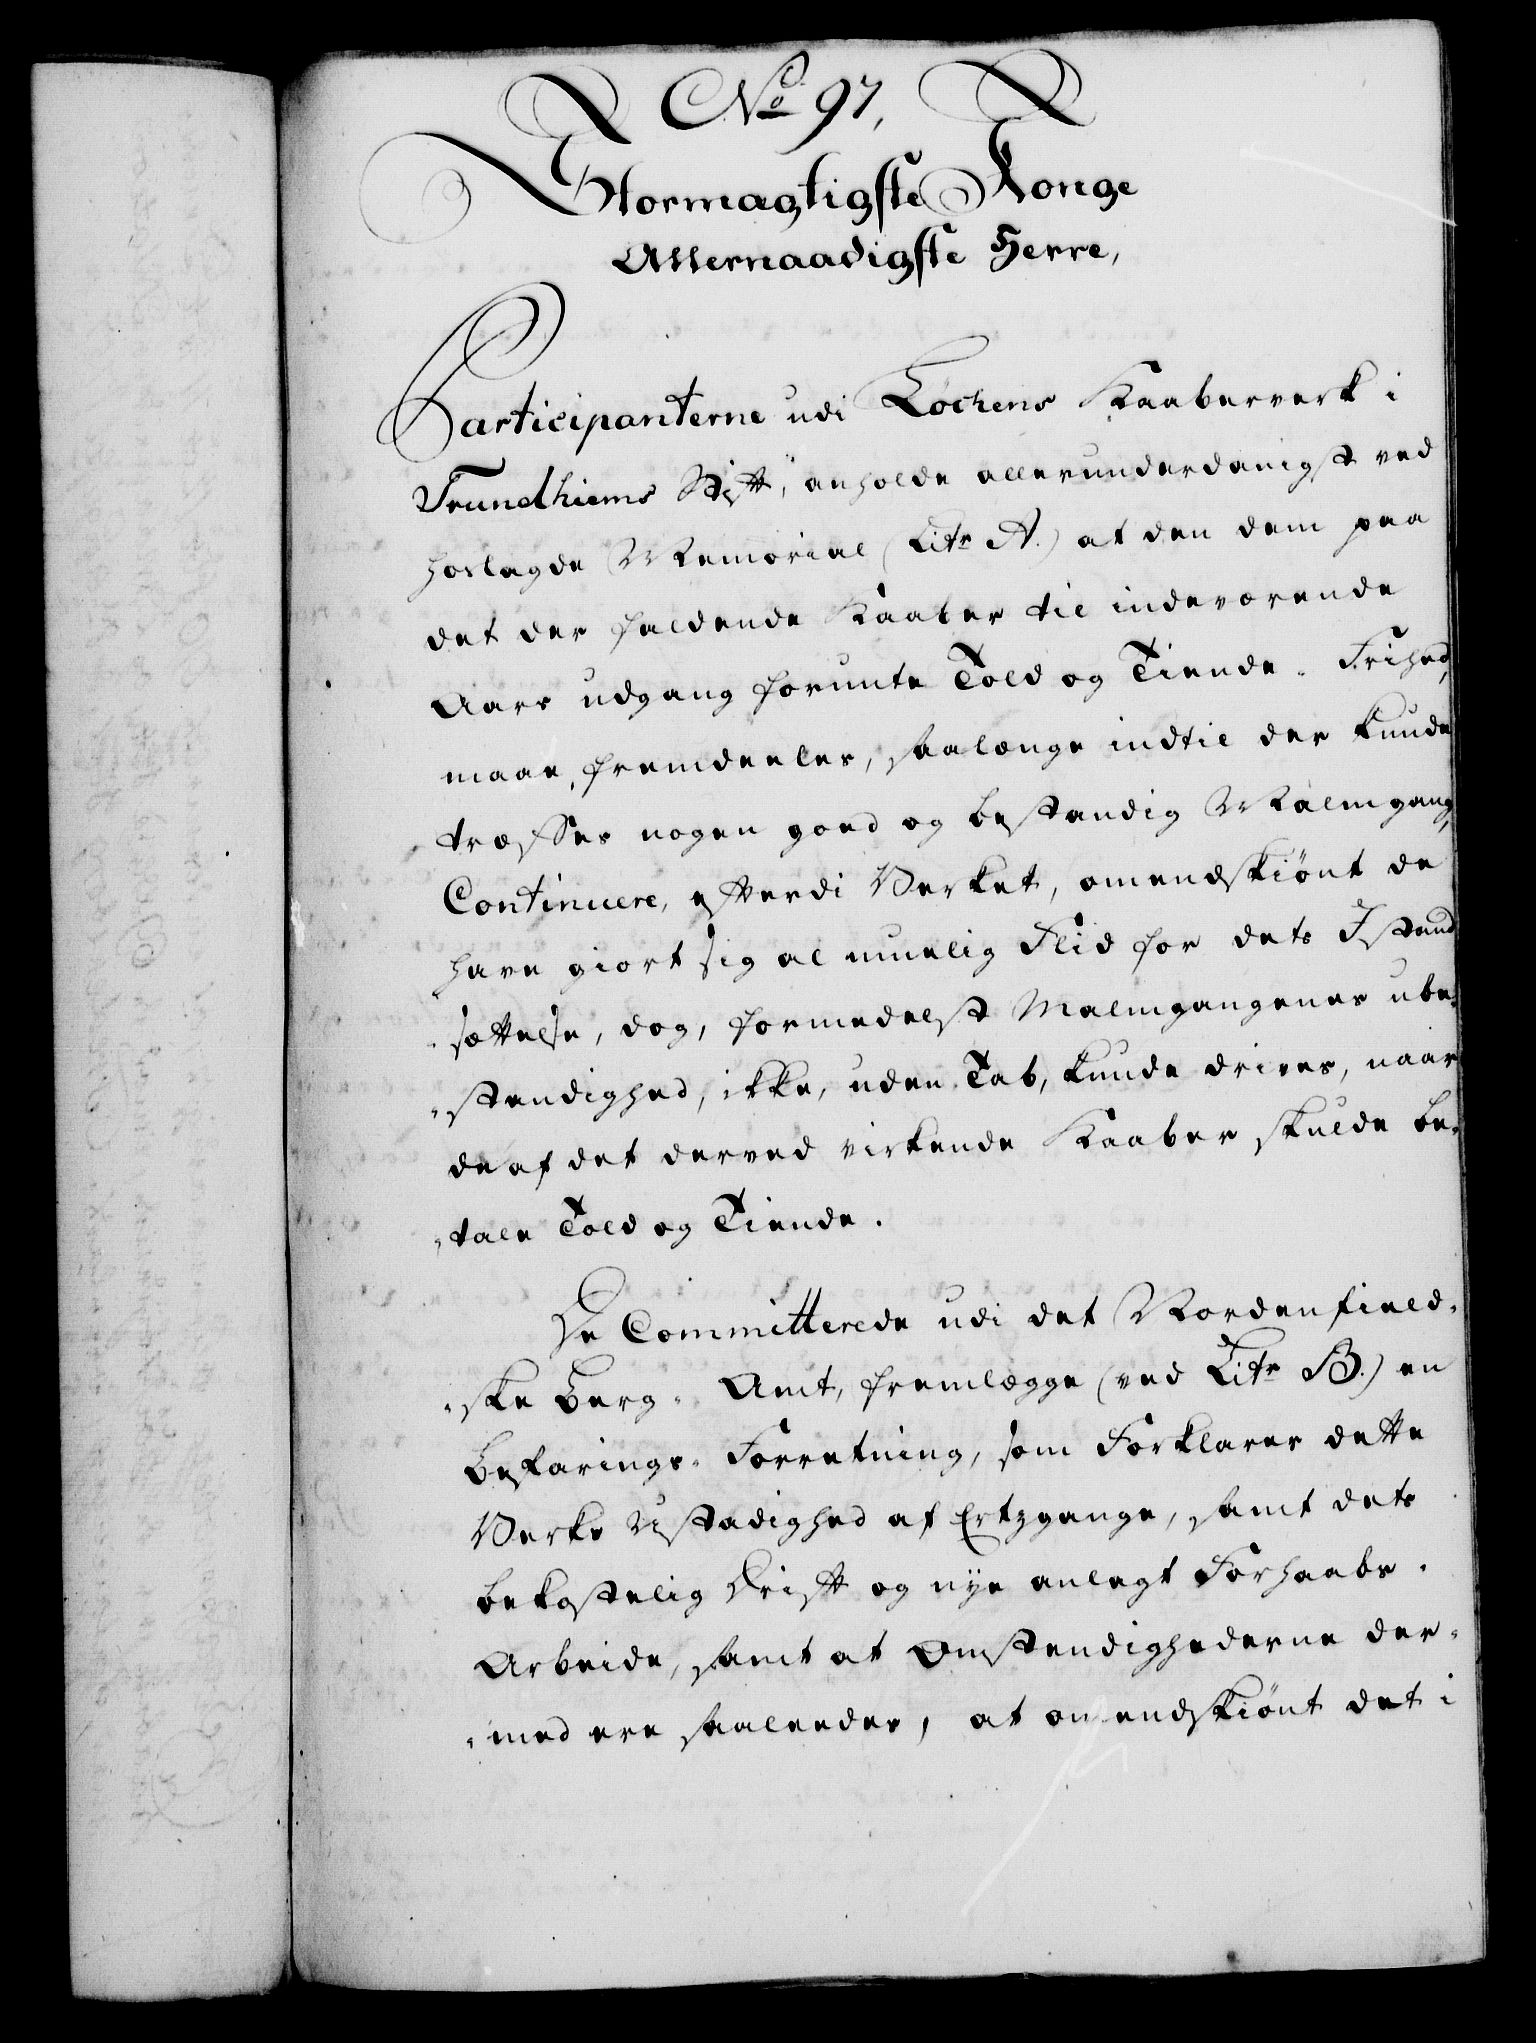 No 97,
Stormægtigste Konge
Allernaadigste Herre,
Participanterne udi Løchens Kaaberverk i
Trundhiems Stift, anholde allerunderdanigst ved
hoslagde Memorial (Litr A.) at den dem paa
det der faldende Kaaber til indeværende
Aars udgang forunte Told og Tiende-Frihed,
maae, fremdeeles, saalænge indtil der kunde
træffes nogen goed og bestandig Malmgang,
Continuere, efterdi Verket, omendskiønt de
have giort sig al muelig Flid for dets Istand
-sættelse, dog, formedelst Malmgangenes ube-
-standighed, ikke, uden Tab, kunde drives, naar
de af det derved virkende Kaaber skulde be-
-tale Told og Tiende.
De Committerede udi det Nordenfield-
-ske Berg-Amt, fremlægge (ved Litr B.) en
Befarings-Forretning, som Forklarer dette
Verks Ustadighed af Ertzgange, samt dets
bekostelig Drift og nye anlagt Forhaabs-
Arbeide, samt at Omstendighederne der-
-med ere saaleedes, at omendskiønt det i